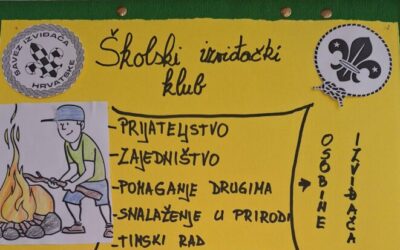 SAVEZ IZVIĐAČA
HRVATSKE
Školski izviđački
klub
- PRIJATELJSTVO
- ZAJEDNIŠTVO
- POMAGANJE DRUGIMA
- SNALAŽENJE U PRIRODI
- TIMSKI RAD
OSOBINE
IZVIĐAČA